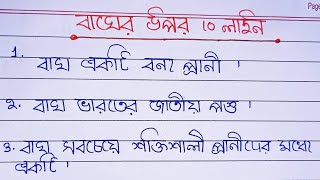 বাঘের উপর 10 লাইন
1. বাঘ একটি বন্য প্রানী ।
২. বাঘ ভারতের জাতীয় পশু ।
৩. বাঘ সবচেয়ে শক্তিশালী প্রানীদের মধ্যে
একটি ।